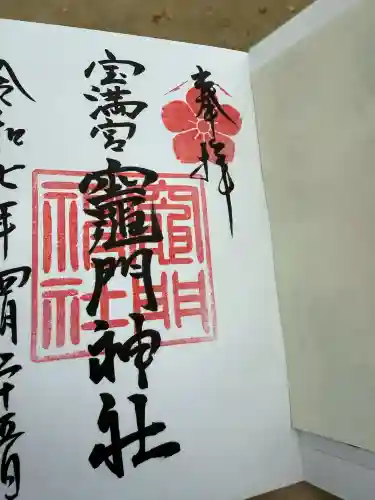 奉拝
宝満宮
竈門神社
令和七年四月二十五日
竈門
神社